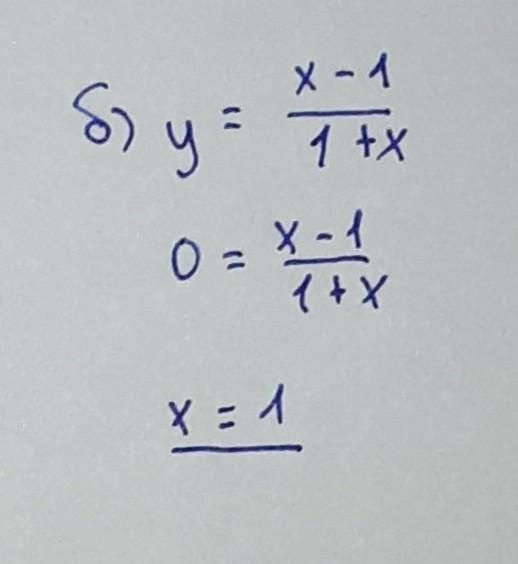 б) y = (x - 1) / (1 + x)
0 = (x - 1) / (1 + x)
x = 1